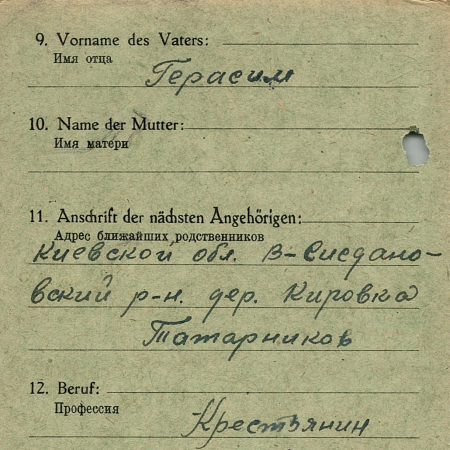 9. Vorname des Vaters:
Имя отца
Герасим
10. Name der Mutter:
Имя матери
11. Anschrift der nächsten Angehörigen:
Адрес ближайших родственников
Киевской обл.
вский р-н. дер. Кировка
Татарников
12. Beruf:
Профессия
Крестьянин